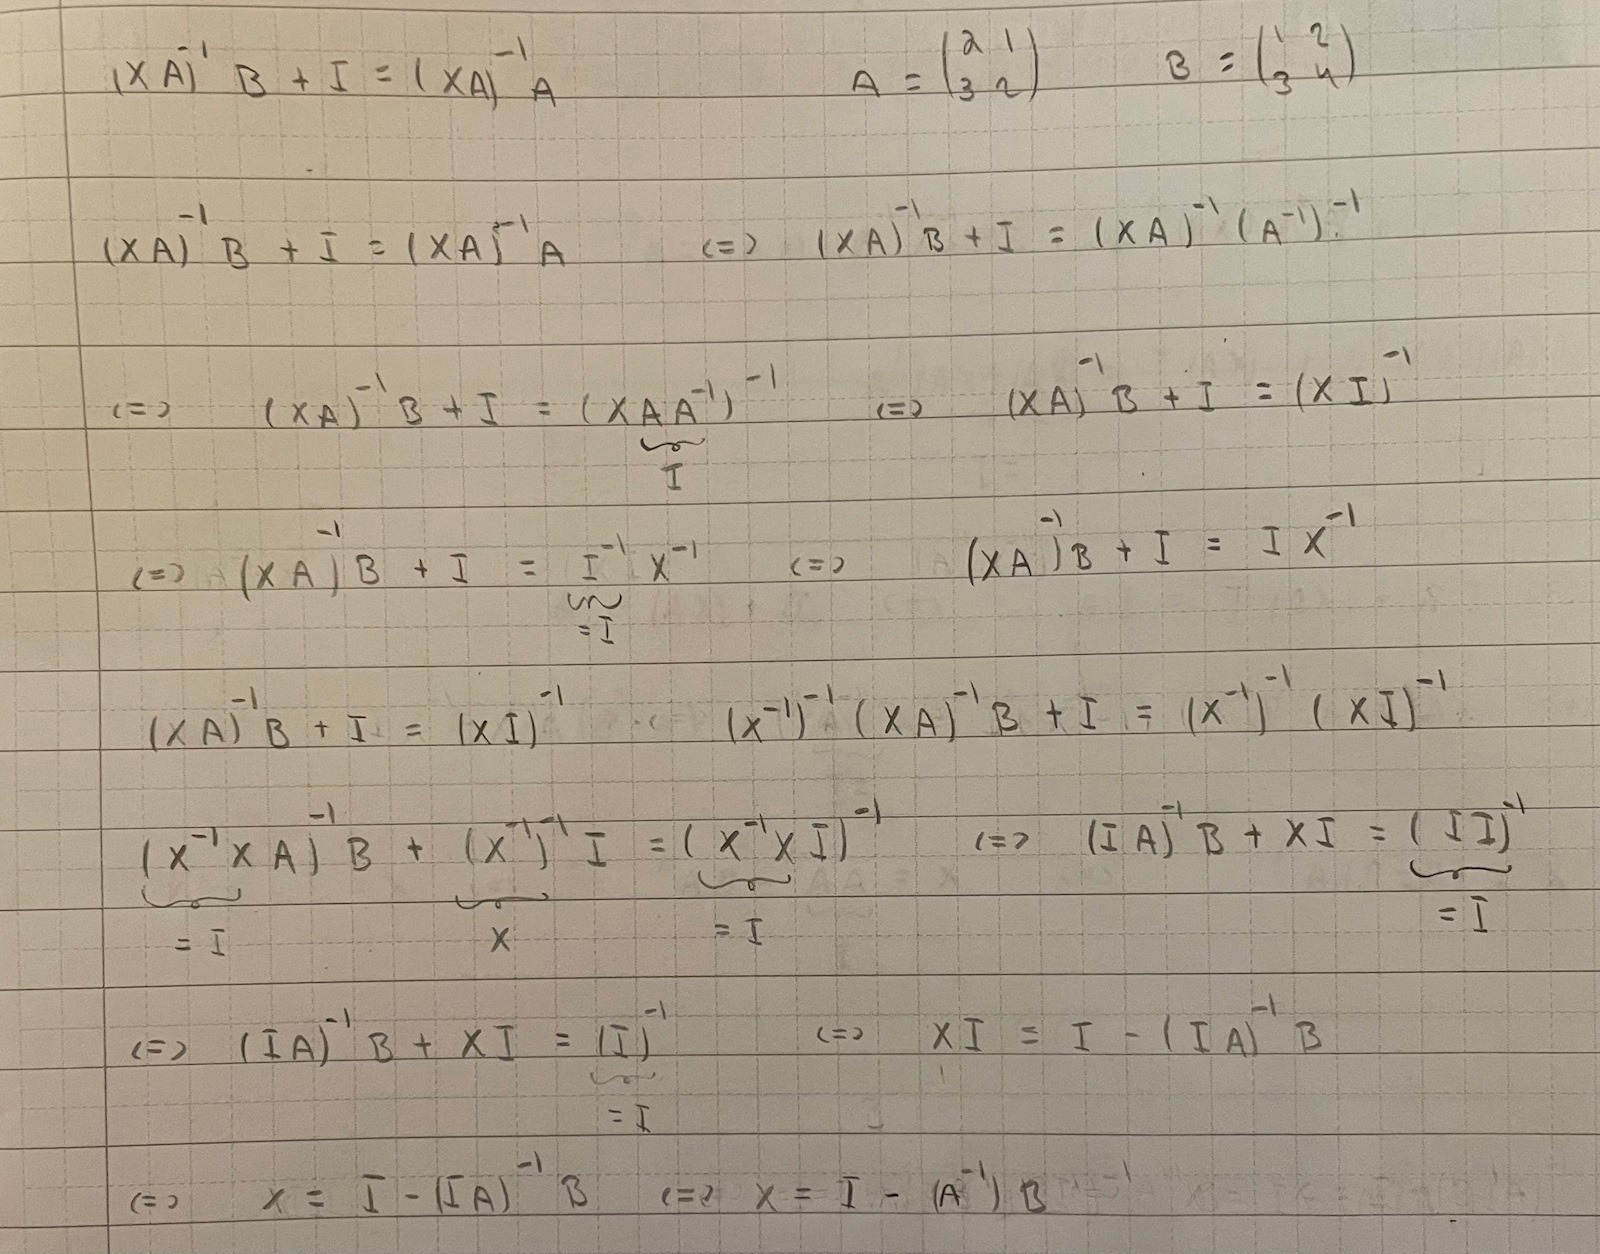 (XA)⁻¹ B + I = (XA)⁻¹ A    A = (2 1 / 3 2)    B = (1 2 / 3 4)
(XA)⁻¹ B + I = (XA)⁻¹ A    (=) (XA)⁻¹ B + I = (XA)⁻¹ (A⁻¹)⁻¹
(=) (XA)⁻¹ B + I = (XAA⁻¹)⁻¹    (=) (XA)⁻¹ B + I = (XI)⁻¹
I
(=) (XA)⁻¹ B + I = I⁻¹ X⁻¹    (=) (XA)⁻¹ B + I = I X⁻¹
= I
(XA)⁻¹ B + I = (XI)⁻¹    (X⁻¹)⁻¹ (XA)⁻¹ B + I = (X⁻¹)⁻¹ (XI)⁻¹
(X⁻¹XA)⁻¹ B + (X⁻¹)⁻¹ I = (X⁻¹XI)⁻¹    (=) (IA)⁻¹ B + XI = (II)⁻¹
= I    X    = I    = I
(=) (IA)⁻¹ B + XI = (I)⁻¹    (=) XI = I - (IA)⁻¹ B
= I
(=) X = I - (IA)⁻¹ B    (=) X = I - (A⁻¹) B